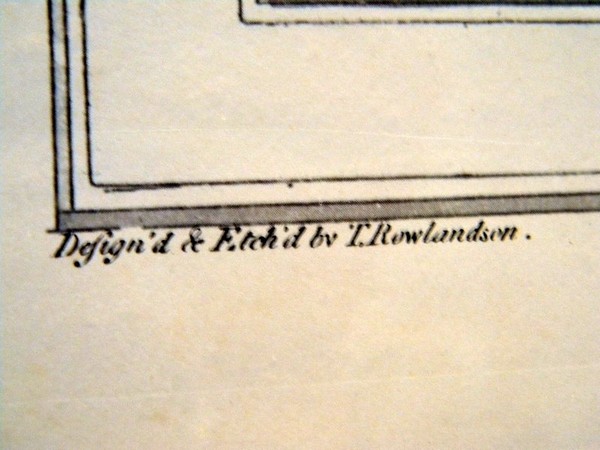 Deſign'd & Etch'd by T. Rowlandson.